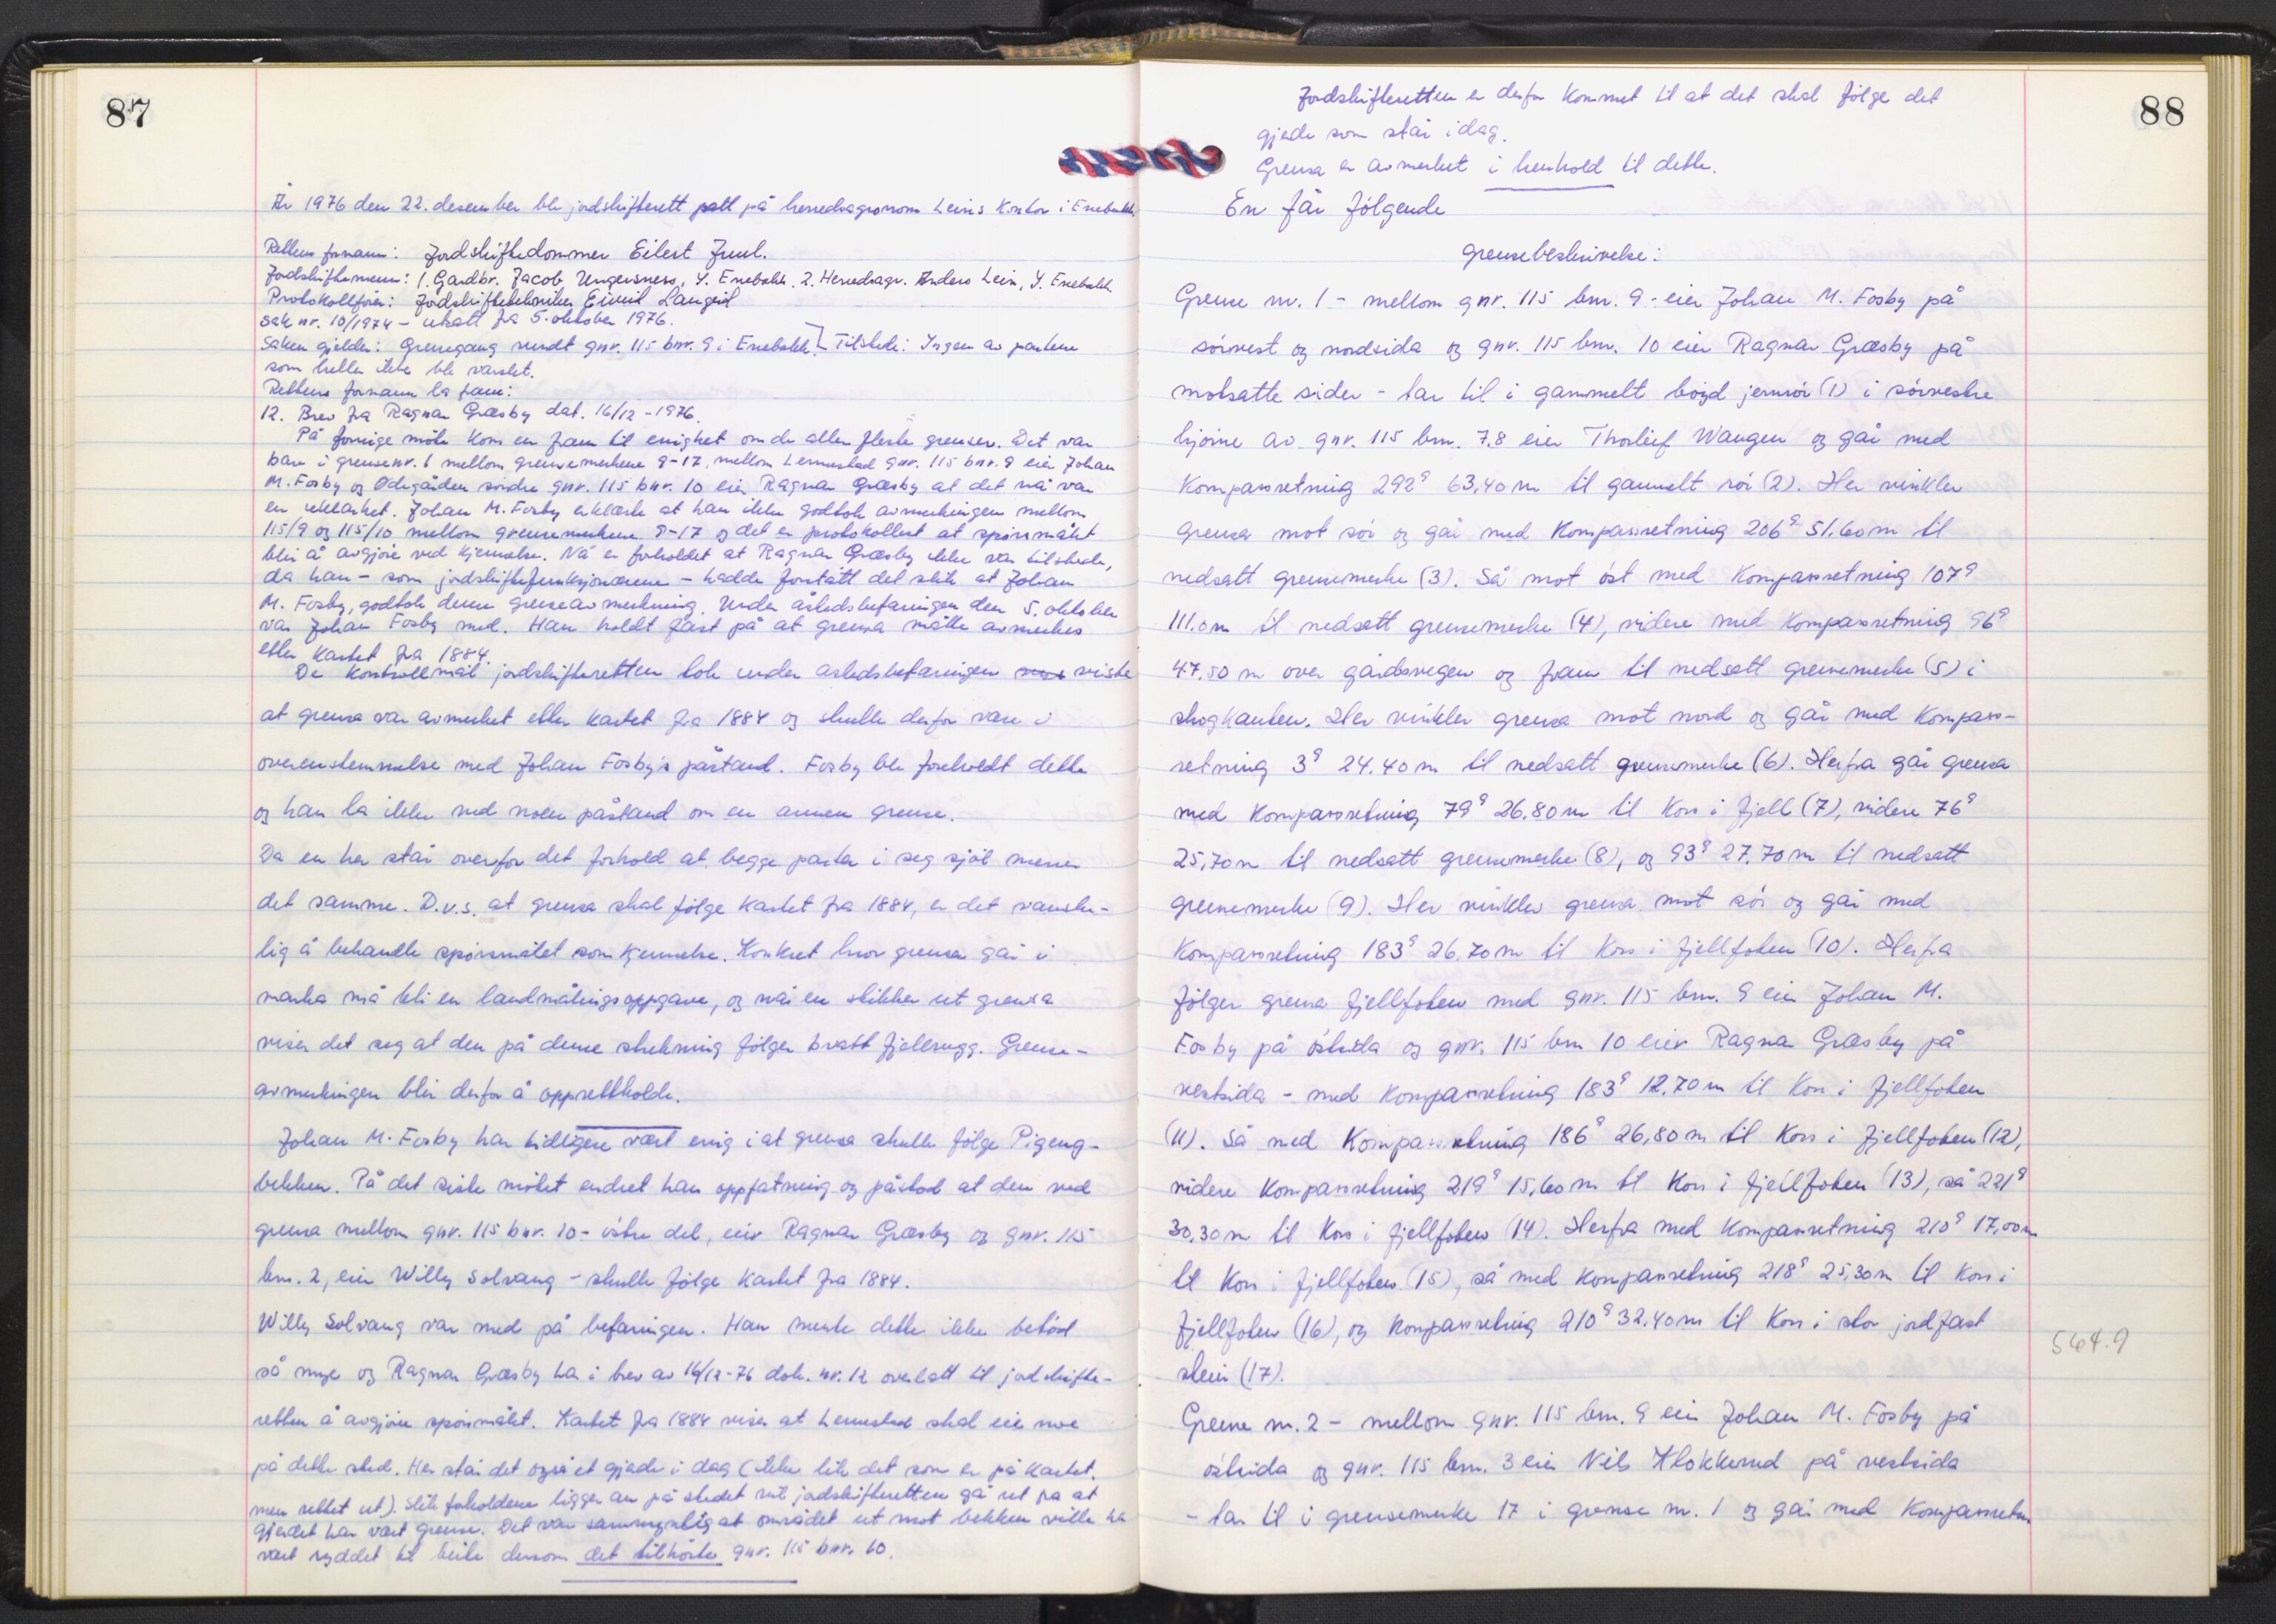 87
År 1976 den 22. desember ble jordskifterett satt på herredsagronom Leins kontor i Enebakk.
Rettens formann: Jordskiftedommer Eilert Juul.
Jordskiftemenn: 1. Gardbr. Jacob Ungersness, Y. Enebakk. 2. Herredsagr. Anders Lein, Y. Enebakk.
Protokollfører: Jordskiftetekniker Eivind Langeid
Sak nr. 10/1974 - utsatt fra 5. oktober 1976.
Saken gjelder: Grensegang rundt gnr. 115 bnr. 9 i Enebakk. Tilstede: Ingen av partene
som heller ikke ble varslet.
Rettens formann la fram:
12. Brev fra Ragnar Græsby dat. 16/12-1976.
På forrige møte kom en fram til enighet om de aller fleste grenser. Det var
bare i grense nr. 1 mellom grensemerkene 9-17, mellom Lennestad gnr. 115 bnr. 9 eier Johan
M. Fosby og Ødegården søndre gnr. 115 bnr. 10 eier Ragnar Græsby at det nå var
en uklarhet. Johan M. Fosby erklærte at han ikke godtok avmerkingen mellom
115/9 og 115/10 mellom grensemerkene 9-17 og det er protokollert at spørsmålet
blir å avgjøre ved kjennelse. Nå er forholdet at Ragnar Græsby ikke var tilstede,
da han - som jordskiftefunksjonærene - hadde forstått det slik at Johan
M. Fosby, godtok denne grenseavmerkning. Under åstedsbefaringen den 5. oktober
var Johan Fosby med. Han holdt fast på at grensa måtte avmerkes
etter kartet fra 1884.
De kontrollmål jordskifteretten tok under åstedsbefaringen viste
at grensa var avmerket etter kartet fra 1884 og skulle derfor være i
overenstemmelse med Johan Fosby's påstand. Fosby ble foreholdt dette
og han la ikke ned noen påstand om en annen grense.
Da en her står overfor det forhold at begge parter i seg sjøl mener
det samme. D.v.s. at grensa skal følge kartet fra 1884, er det vanske-
lig å behandle spørsmålet som kjennelse. Konkret hvor grensa går i
marka må bli en landmålingsoppgave, og når en stikker ut grensa
viser det seg at den på denne strekning følger bratt fjellrygg. Grense-
avmerkingen blir derfor å opprettholde.
Johan M. Fosby har tidligere vært enig i at grensa skulle følge Pigeng-
bekken. På det siste møtet endret han oppfatning og påstod at den ved
grensa mellom gnr. 115 bnr. 10 - østre del, eier Ragnar Græsby og gnr. 115
bnr. 2, eier Willy Solvang - skulle følge kartet fra 1884.
Willy Solvang var med på befaringen. Han mente dette ikke betød
så mye og Ragnar Græsby har i brev av 16/12-76 dok. nr. 12 overlatt til jordskifte-
retten å avgjøre spørsmålet. Kartet fra 1884 viser at Lennestad skal eie noe
på dette sted. Her står det også et gjerde i dag (ikke likt det som er på kartet,
men rettet ut). Slik forholdene ligger an på stedet må jordskifteretten gå ut fra at
gjerdet har vært grense. Det var sannsynlig at området ut mot bekken ville ha
vært ryddet til beite dersom det tilhørte gnr. 115 bnr. 10.
88
Jordskifteretten er derfor kommet til at det skal følge det
gjerde som står idag.
Grensa er avmerket i henhold til dette.
En får følgende
grensebeskrivelse:
Grense nr. 1 - mellom gnr. 115 bnr. 9 - eier Johan M. Fosby på
sørvest og nordsida og gnr. 115 bnr. 10 eier Ragnar Græsby på
motsatte sider - tar til i gammelt bøyd jernrør (1) i sørvestre
hjørne av gnr. 115 bnr. 7,8 eier Thorleif Wangen og går med
kompassretning 292g 63,40 m til gammelt rør (2). Her vinkler
grensa mot sør og går med kompassretning 206g 51.60 m til
nedsatt grensemerke (3). Så mot øst med kompassretning 107g
111.0 m til nedsatt grensemerke (4), videre med kompassretning 96g
47.50 m over gårdsvegen og fram til nedsatt grensemerke (5) i
skogkanten. Her vinkler grensa mot nord og går med kompass-
retning 3g 24.40 m til nedsatt grensemerke (6). Herfra går grensa
med kompassretning 79g 26.80 m til kors i fjell (7), videre 76g
25,70 m til nedsatt grensemerke (8), og 93g 27,70 m til nedsatt
grensemerke (9). Her vinkler grensa mot sør og går med
kompassretning 183g 26,70 m til kors i fjellfoten (10). Herfra
følger grensa fjellfoten med gnr. 115 bnr. 9 eier Johan M.
Fosby på østsida og gnr. 115 bnr 10 eier Ragnar Græsby på
vestsida - med kompassretning 183g 12.70 m til kors i fjellfoten
(11). Så med kompassretning 186g 26,80 m til kors i fjellfoten (12),
videre kompassretning 219g 15,60 m til kors i fjellfoten (13), så 221g
30,30 m til kors i fjellfoten (14). Herfra med kompassretning 210g 17,00 m
til kors i fjellfoten (15), så med kompassretning 218g 25,30 m til kors i
fjellfoten (16), og kompassretning 210g 32,40 m til kors i stor jordfast
stein (17).
564.9
Grense nr. 2 - mellom gnr. 115 bnr. 9 eier Johan M. Fosby på
østsida og gnr. 115 bnr. 3 eier Nils Klokkerud på vestsida
- tar til i grensemerke 17 i grense nr. 1 og går med kompassretn